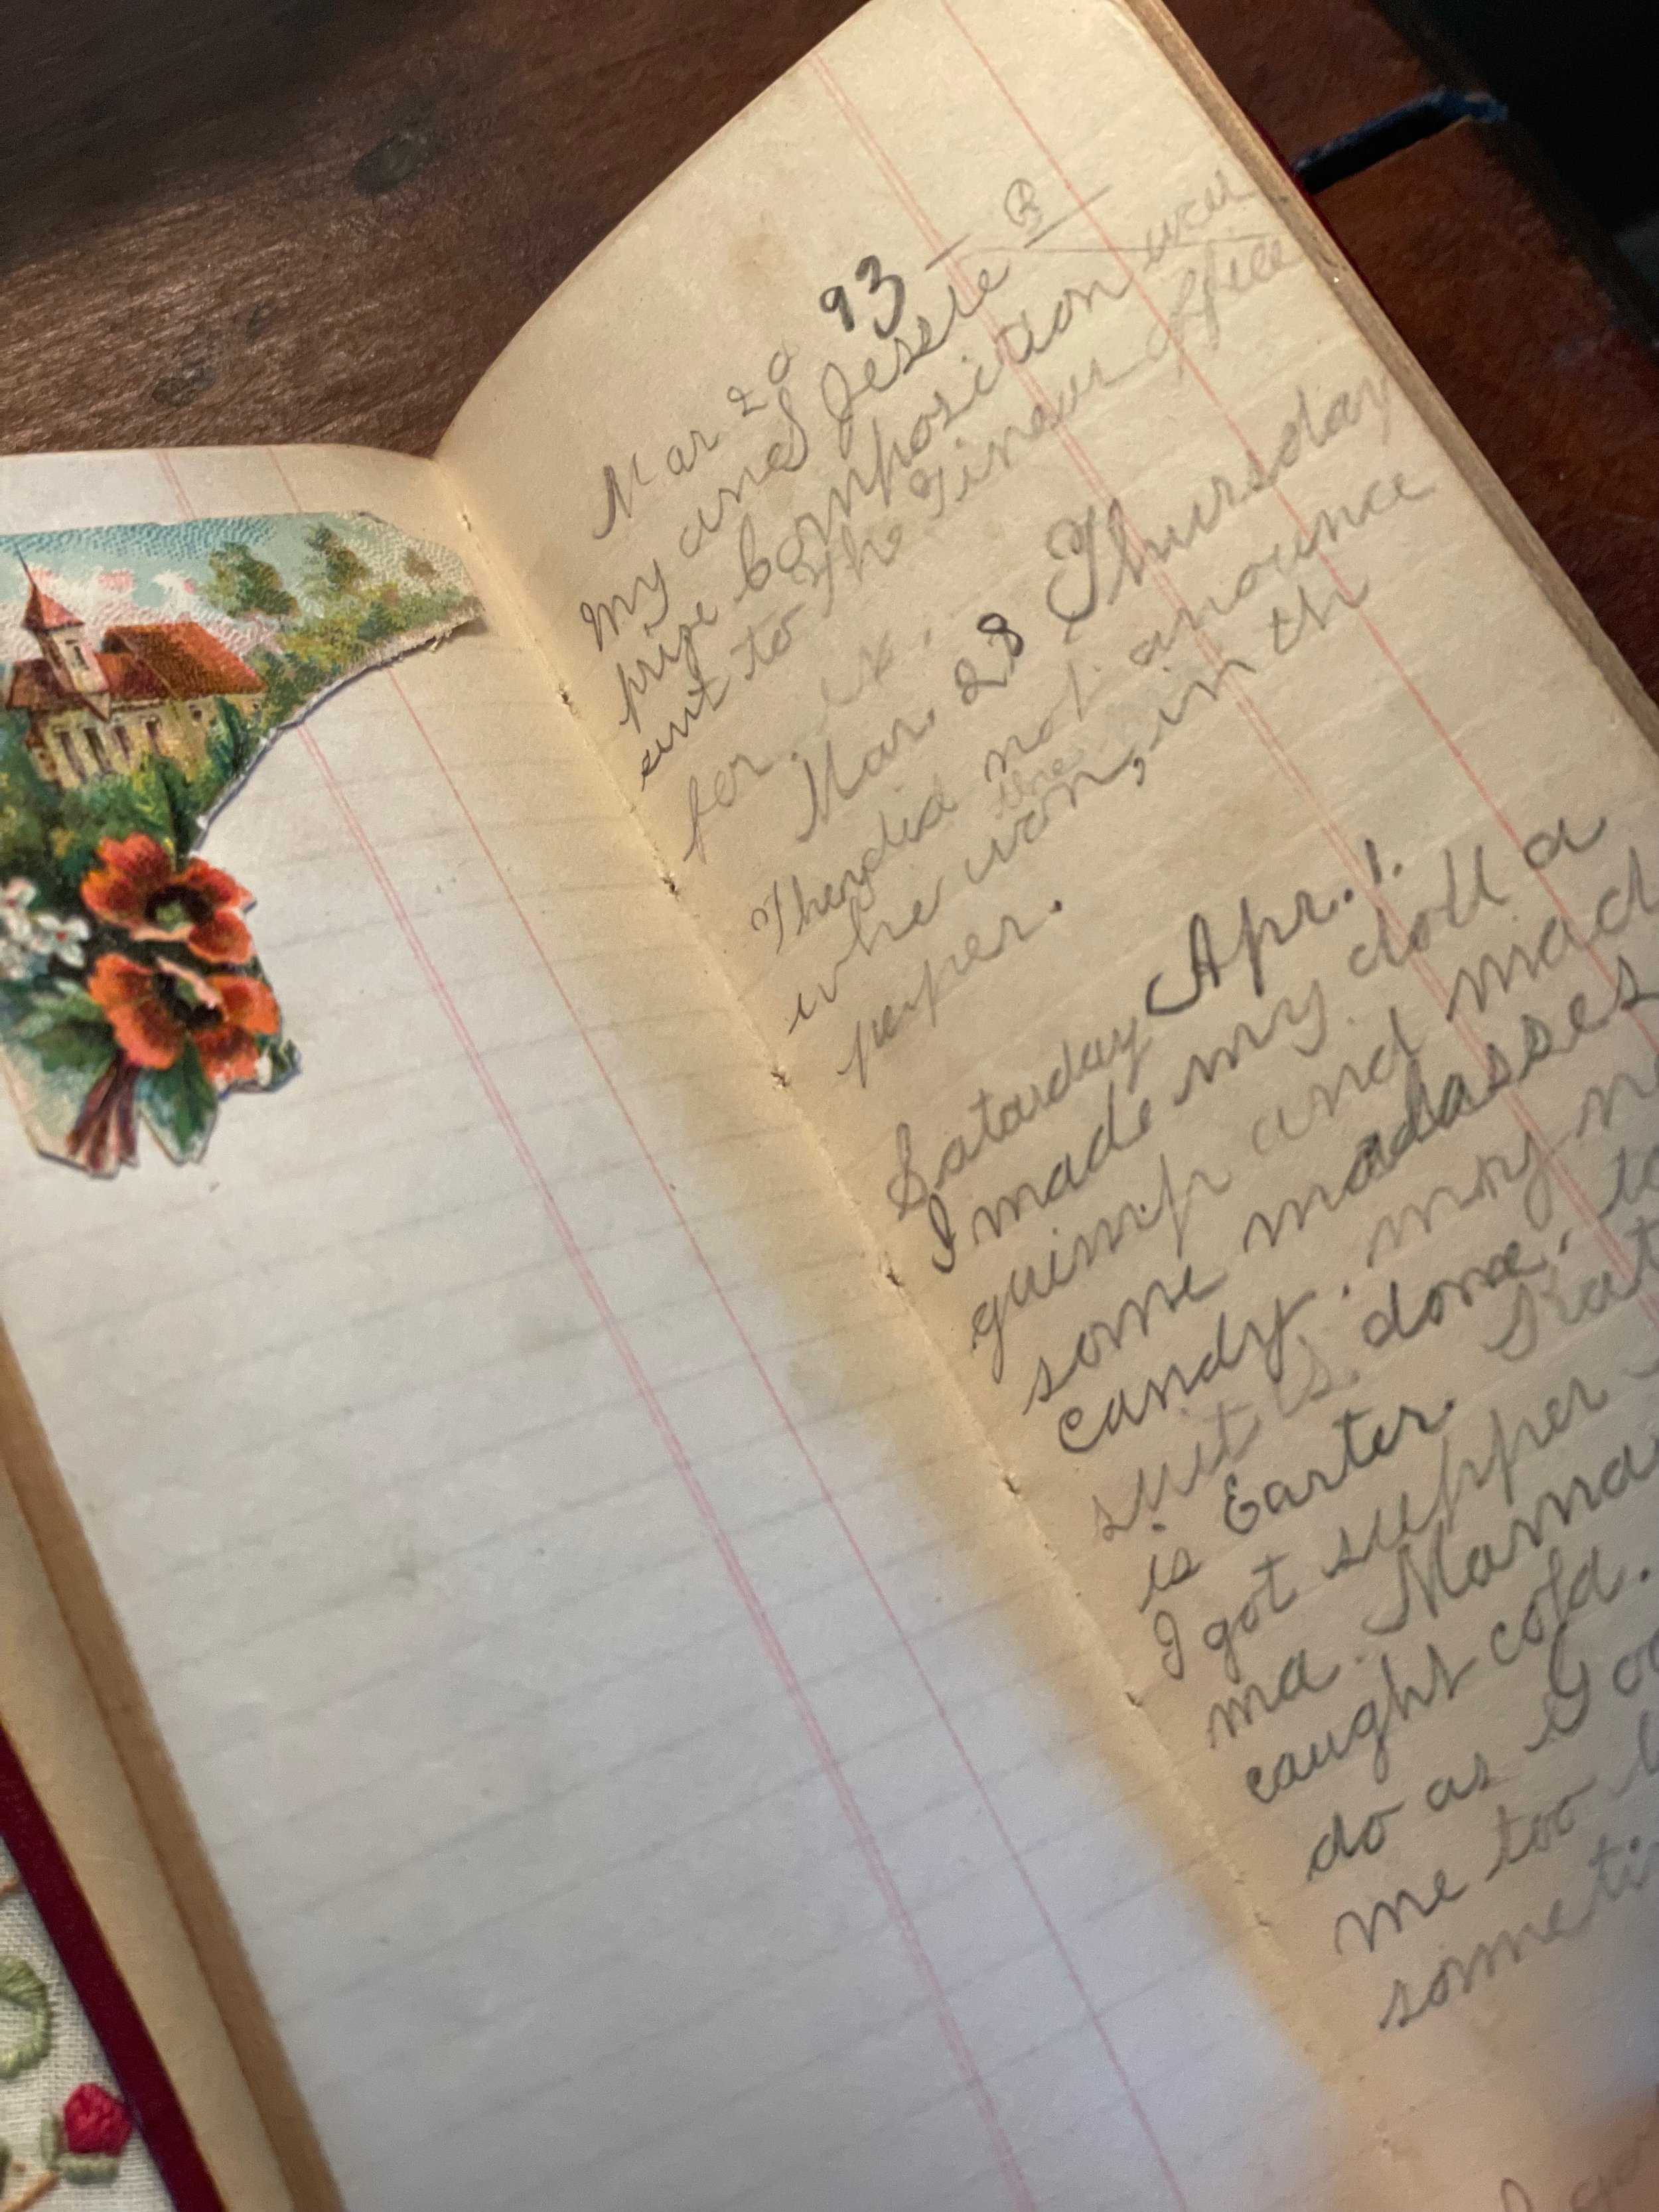 Mar 20 93
My and Jessie B
prize Composition was
ent to the Times office
for ex.
Mar. 28 Thursday
They did not anounce
the
who won, in th
paper.
Satarday Apr. 1.
I made my doll a
guimp and mad
some molasses
candy. my n
suit is done. to
is Easter. Kat
I got supper
ma. Mamma
caught cold.
do as Goo
me too
someti